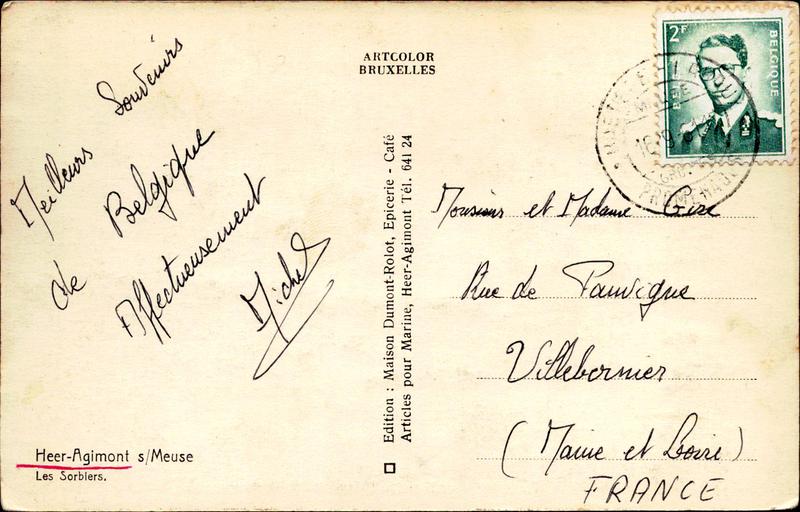 Meilleurs Souvenirs
de Belgique
Affectueusement
Michel
Heer-Agimont s/Meuse
Les Sorbiers.
ARTCOLOR
BRUXELLES
Edition : Maison Dumont-Rolot, Epicerie - Café
Articles pour Marine, Heer-Agimont Tél. 641 24
2F
BELGIQUE
Monsieur et Madame Gire
Rue de
Villebernier
(Maine et Loire)
FRANCE